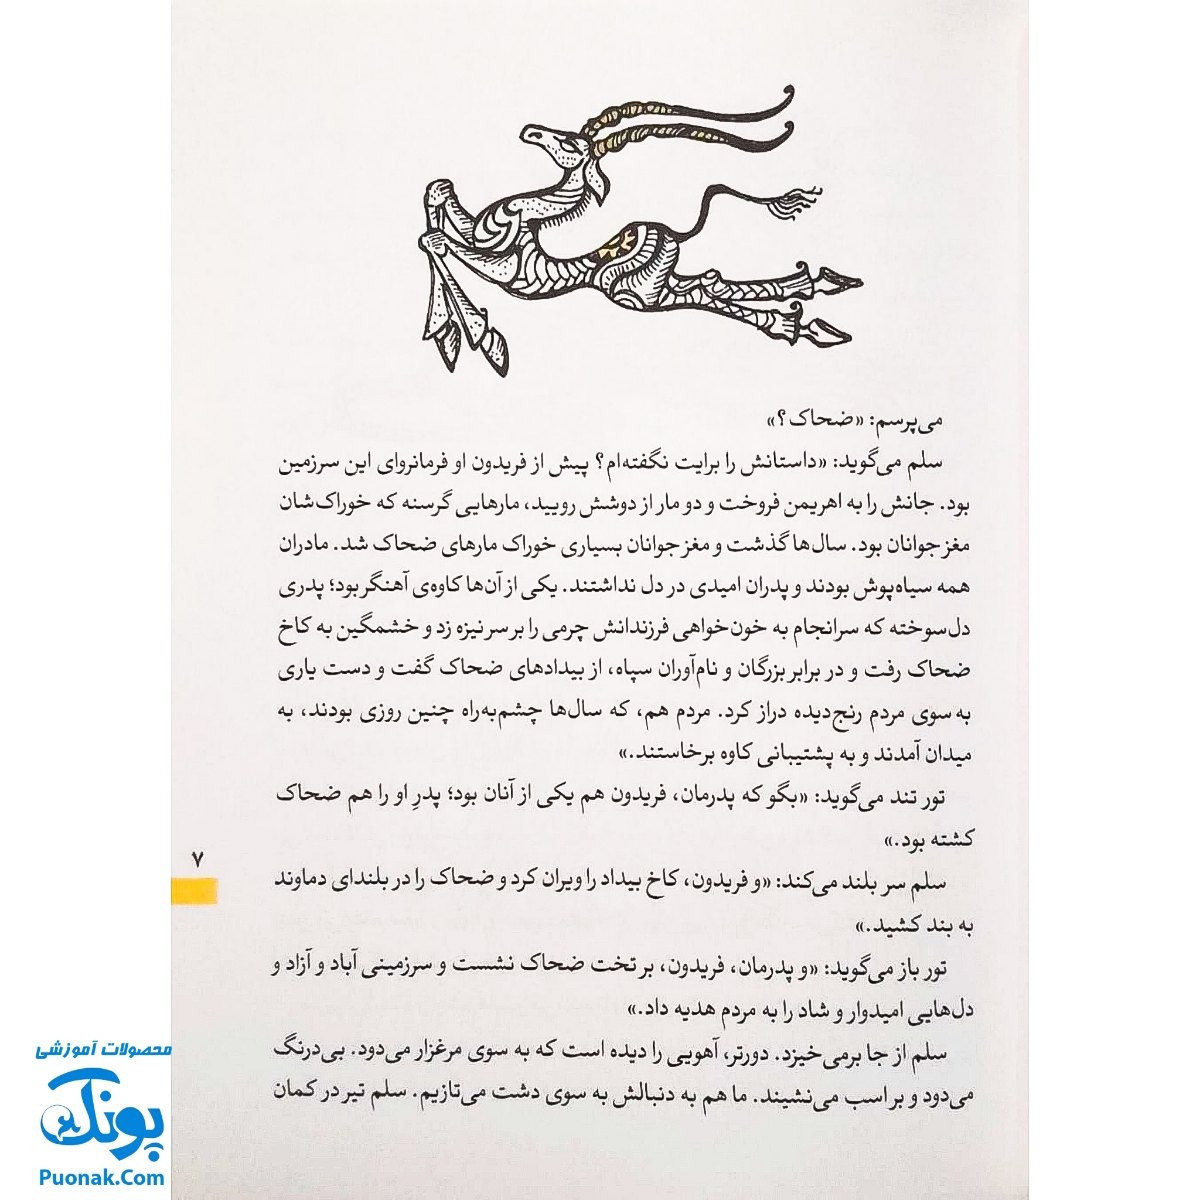 می‌پرسم: «ضحاک؟»
سلم می‌گوید: «داستانش را برایت نگفته‌ام؟ پیش از فریدون او فرمانروای این سرزمین
بود. جانش را به اهریمن فروخت و دو مار از دوشش رویید، مارهایی گرسنه که خوراک‌شان
مغز جوانان بود. سال‌ها گذشت و مغز جوانان بسیاری خوراک مارهای ضحاک شد. مادران
همه سیاه‌پوش بودند و پدران امیدی در دل نداشتند. یکی از آن‌ها کاوه‌ی آهنگر بود؛ پدری
دل‌سوخته که سرانجام به خون‌خواهی فرزندانش چرمی را بر سر نیزه زد و خشمگین به کاخ
ضحاک رفت و در برابر بزرگان و نام‌آوران سپاه، از بیدادهای ضحاک گفت و دست یاری
به سوی مردم رنج‌دیده دراز کرد. مردم هم، که سال‌ها چشم‌به‌راه چنین روزی بودند، به
میدان آمدند و به پشتیبانی کاوه برخاستند.»
تور تند می‌گوید: «بگو که پدرمان، فریدون هم یکی از آنان بود؛ پدرِ او را هم ضحاک
کشته بود.»
سلم سر بلند می‌کند: «و فریدون، کاخ بیداد را ویران کرد و ضحاک را در بلندای دماوند
به بند کشید.»
تور باز می‌گوید: «و پدرمان، فریدون، بر تخت ضحاک نشست و سرزمینی آباد و آزاد و
دل‌هایی امیدوار و شاد را به مردم هدیه داد.»
سلم از جا برمی‌خیزد. دورتر، آهویی را دیده است که به سوی مرغزار می‌دود. بی‌درنگ
می‌دود و بر اسب می‌نشیند. ما هم به دنبالش به سوی دشت می‌تازیم. سلم تیر در کمان
۷
محصولات آموزشی
پونک
Puonak.Com